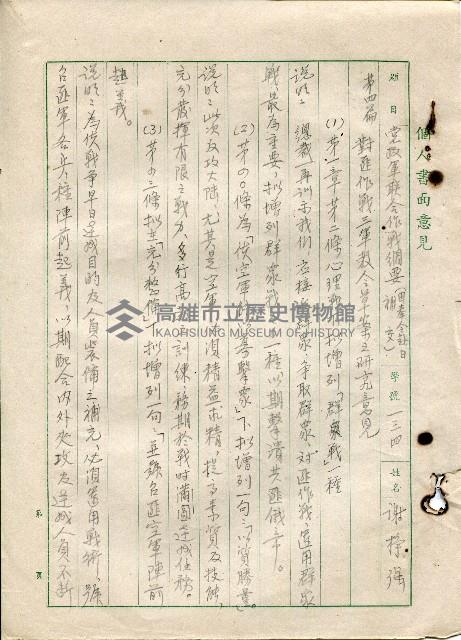 個人書面意見
題目 黨政軍聯合作戰綱要（因奉公缺日補交） 學號 一三四 姓名 謝
第四篇 對匪作戰三軍教令草案之研究意見
(1)、第一章第二條心理 擬增列「群眾戰」一種
說明： 總裁再訓示我們 群眾、爭取群眾、對匪作戰、運用群眾
戰、最為重要，擬增列群眾戰一種，以期擊潰共匪俄帝。
(2) 第40條為「伏空軍 襲擊」下擬增列一句「以質勝量」。
說明：此次反攻大陸，尤其是空軍 須精益求精，提高素質及技能，
充分發揮有限之戰力、多行高 訓練、務期於戰時滿圓達成任務。
(3) 第43條擬於「充分整備」下擬增列一句、「並號召匪空軍陣前
起義。
說明：為使戰爭早日達成目的及人員裝備之補充、必須運用戰術、號
召匪軍各兵種陣前起義、以期配合內外夾攻及達成人員不斷
第 頁
高雄市立歷史博物館
KAOHSIUNG MUSEUM OF HISTORY